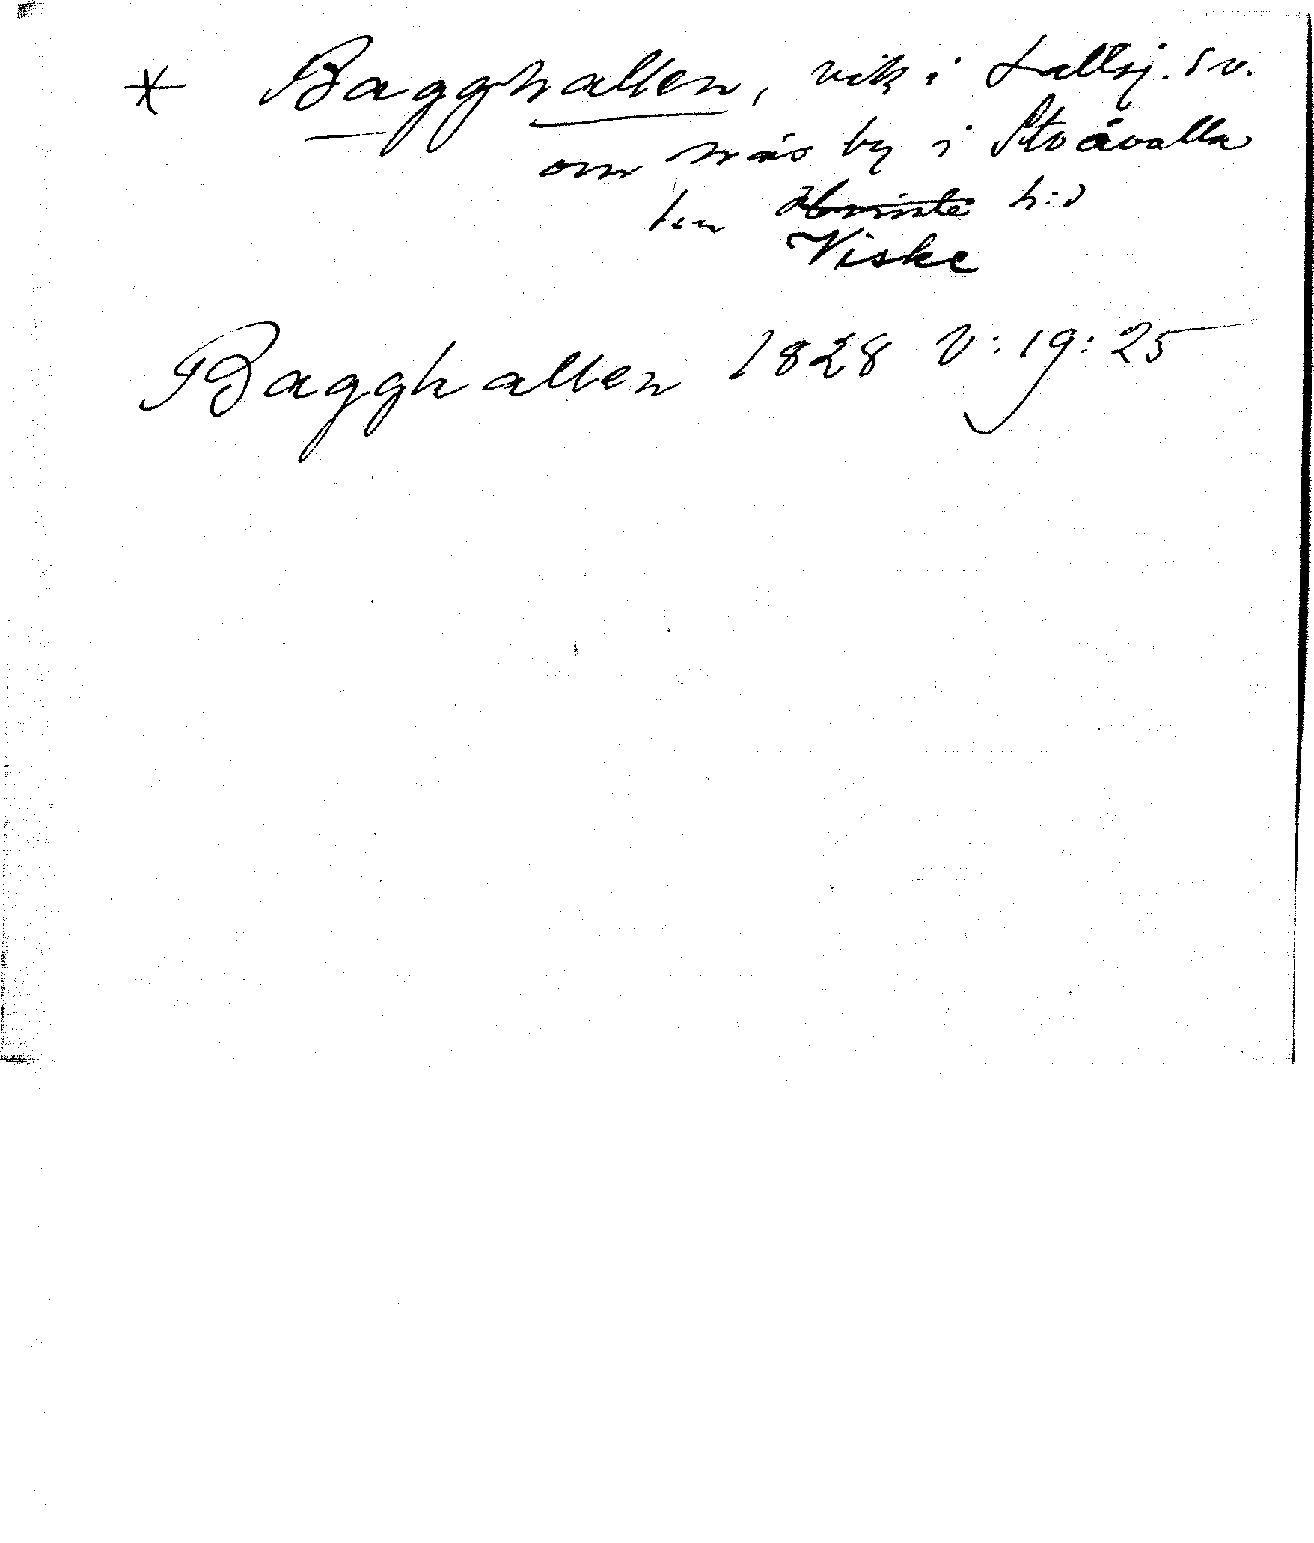 * Bagghallen, vik i Lallsj. s v.
om näs by i Stråvalla
sn Himle h:d
Viske
Bagghallen 1828 V:19:25